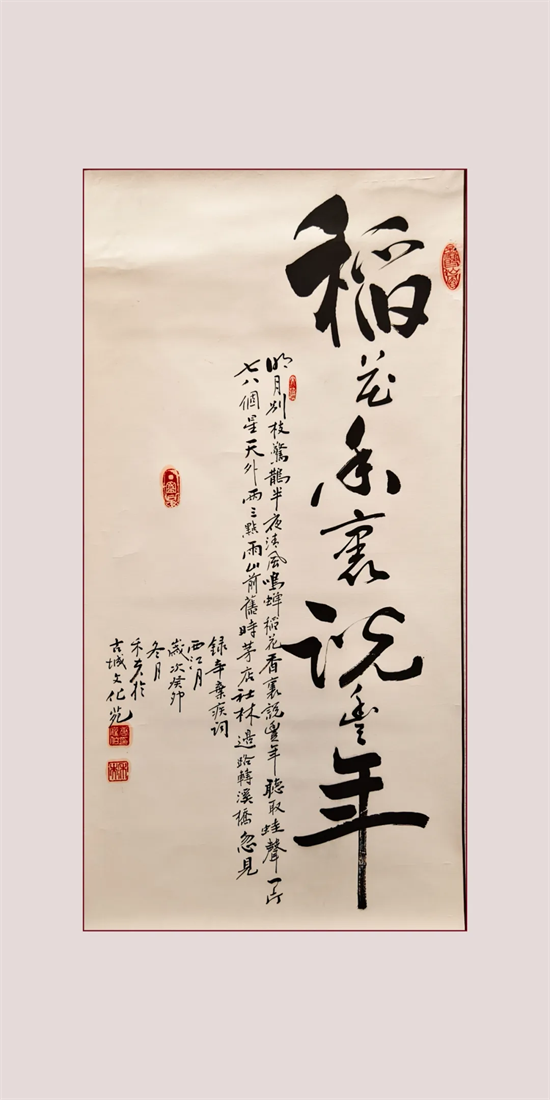 稻花香裏說豐年
明月别枝驚鵲半夜清風鳴蟬稻花香裏説豐年聽取蛙聲一片
七八個星天外兩三點雨山前舊時茅店社林邊路轉溪橋忽見
録辛棄疾詞
西江月
歲次癸卯
冬月
於
古城文化苑